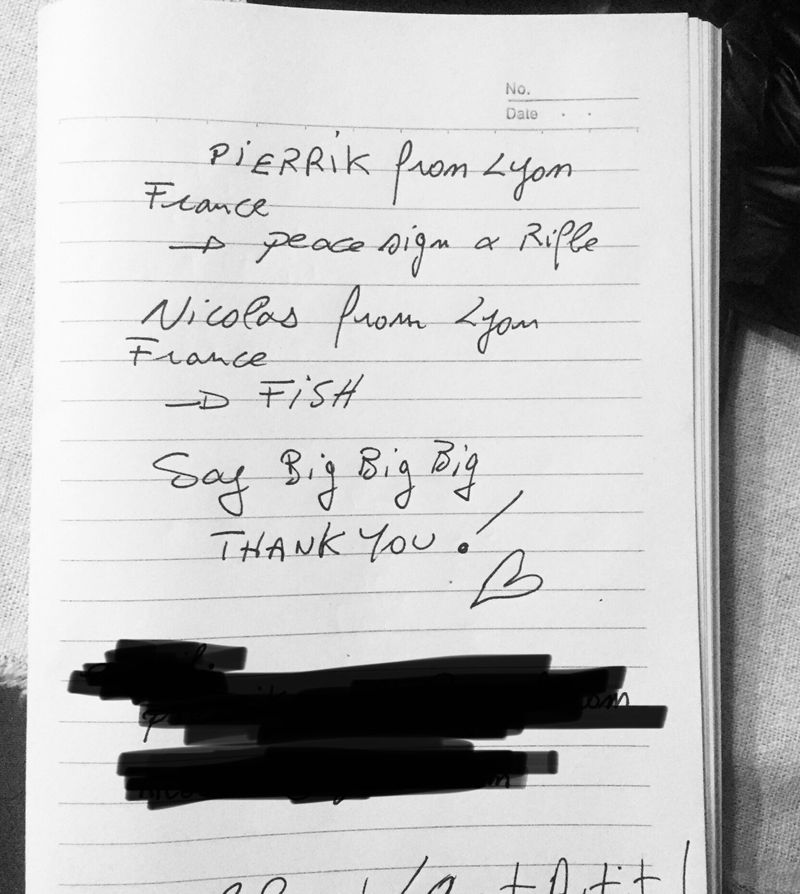 No.
Date
PIERRIK from Lyon
France
→ peace sign & Rifle
Nicolas from Lyon
France
→ FISH
Say Big Big Big
THANK YOU!